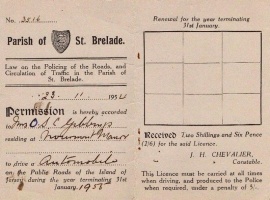 No. 3514
Parish of St. Brelade.
Law on the Policing of the Roads, and
Circulation of Traffic in the Parish of
St. Brelade.
23 . 11 195
Permission is hereby accorded
to Mrs O S C Gibbons
residing at Noirmont Manor
to drive a Automobile
on the Public Roads of the Island of
Jersey during the year terminating 31st
January, 195
Renewal for the year terminating
31st January.
Received Two Shillings and Six Pence
(2/6) for the said Licence.
J. H. CHEVALIER,
Constable.
This Licence must be carried at all times
when driving, and produced to the Police
when required, under a penalty of 5/-